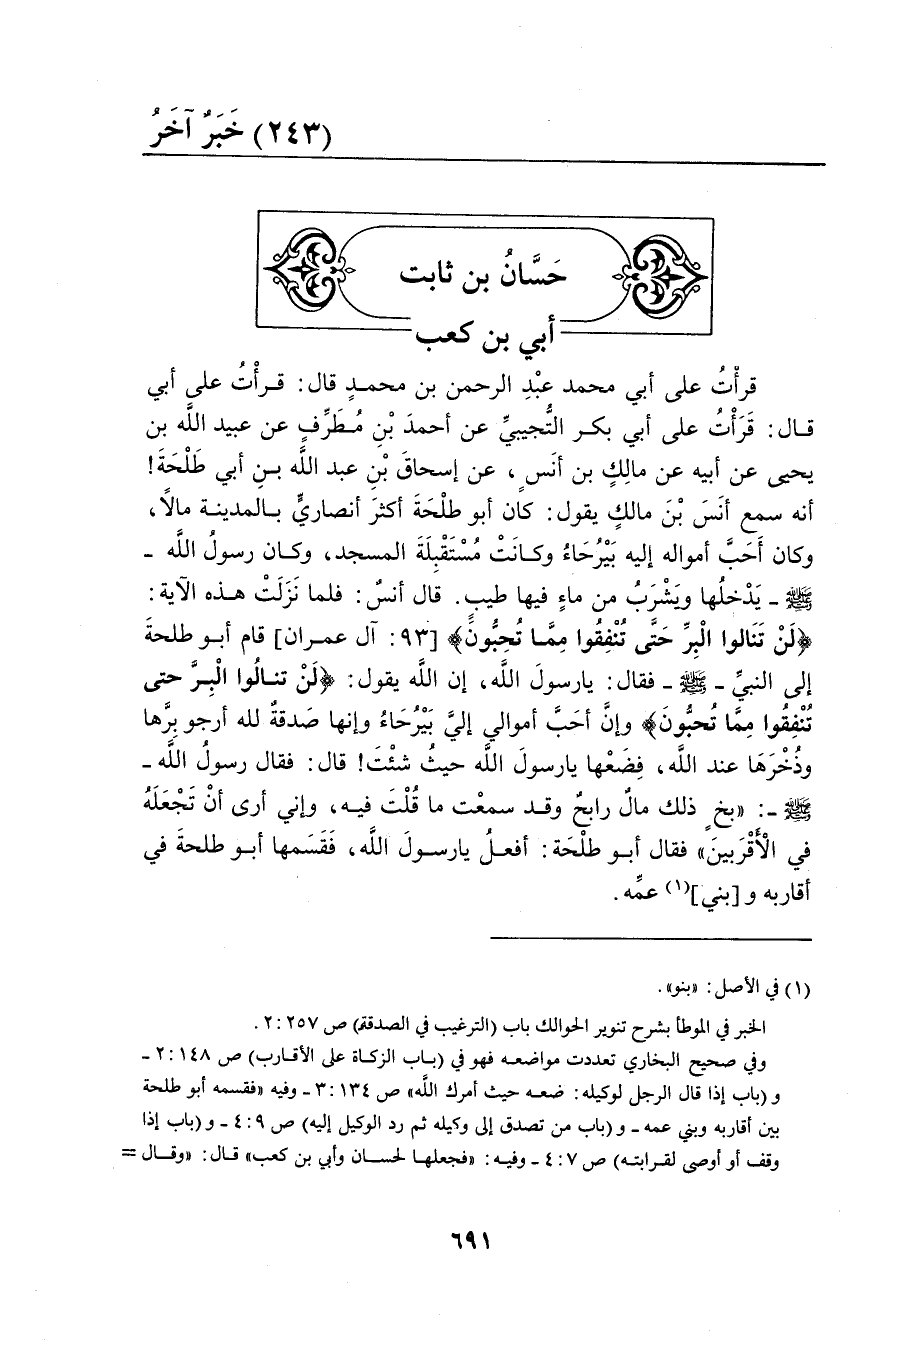 (٢٤٣) خَبَرٌ آخَرُ
حَسَّانُ بن ثابت
أبي بن كعب
قرأْتُ على أبي محمد عبْدِ الرحمن بن محمـدٍ قال: قـرأْتُ على أبي
قـال: قَرَأْتُ على أبي بكـر التُّجيبيِّ عن أحمدَ بْنِ مُـطَرِّفٍ عن عبيد اللَّه بن
يحيى عن أبيه عن مالِكٍ بن أنَسٍ، عن إسحاقَ بْنِ عبد اللَّه بـن أبي طَلْحَةَ!
أنه سمع أنَسَ بْنَ مالكٍ يقول: كان أبو طلْحَةَ أكثرَ أنصاريٍّ بـالمدينـة مالًا،
وكان أَحَبَّ أمواله إليه بَيْرُحَاءُ وكـانَتْ مُسْتَقْبِلَةَ المسجد، وكـان رسولُ اللَّه ـ
ﷺ ـ يَدْخلُها ويَشْرَبُ من ماءٍ فيها طيبٍ. قال أنسٌ: فلما نَزَلَتْ هـذه الآية:
﴿لَنْ تَنَالوا الْبِرَّ حَتَّى تُنْفِقُوا مِمَّـا تُحبُّونَ﴾ [٩٣: آل عمـران] قام أبـو طلحةَ
إلى النبيِّ ـ ﷺ ـ فقال: يارسولَ اللَّه، إن اللَّه يقول: ﴿لَنْ تنـالُوا الْبِـرَّ حتى
تُنْفِقُوا مِمَّا تُحبُّونَ﴾ وإنَّ أحَبَّ أموالي إليَّ بَيْرُحَاءُ وإنها صَدقةٌ لله أرجو بِرَّها
وذُخْرَهَا عند اللَّه، فِضَعْها يارسولَ اللَّه حيثُ شئْتَ! قال: فقال رسولُ اللَّه ـ
ﷺ ـ: «بخٍ ذلك مالٌ رابحٌ وقـد سمعْت ما قُلْتَ فيـه، وإني أرى أنْ تَجْعَلَهُ
في الْأَقْرَبينَ» فقال أبـو طلْحَة: أفعـلُ يارسـولَ اللَّه، فَقَسَمها أبـو طلحةَ في
أقاربه و [بني](١) عمِّه.
(١) في الأصل: «بنو».
الخبر في الموطأ بشرح تنوير الحوالك باب (الترغيب في الصدقة) ص ٢:٢٥٧.
وفي صحيح البخاري تعددت مواضعـه فهو في (بـاب الزكـاة على الأقارب) ص ٢:١٤٨ ـ
و (باب إذا قال الرجل لوكيله: ضعـه حيث أمرك اللَّه» ص ٣:١٣٤ ـ وفيه «فقسمه أبو طلحة
بين أقاربه وبني عمه ـ و (باب من تصدق إلى وكيله ثم رد الوكيل إليه) ص ٤:٩ ـ و (باب إذا
وقف أو أوصى لقـرابتـه) ص ٤:٧ ـ وفيـه: «فجعلهـا لحسـان وأبي بن كعب» قـال: «وقـال =
٦٩١